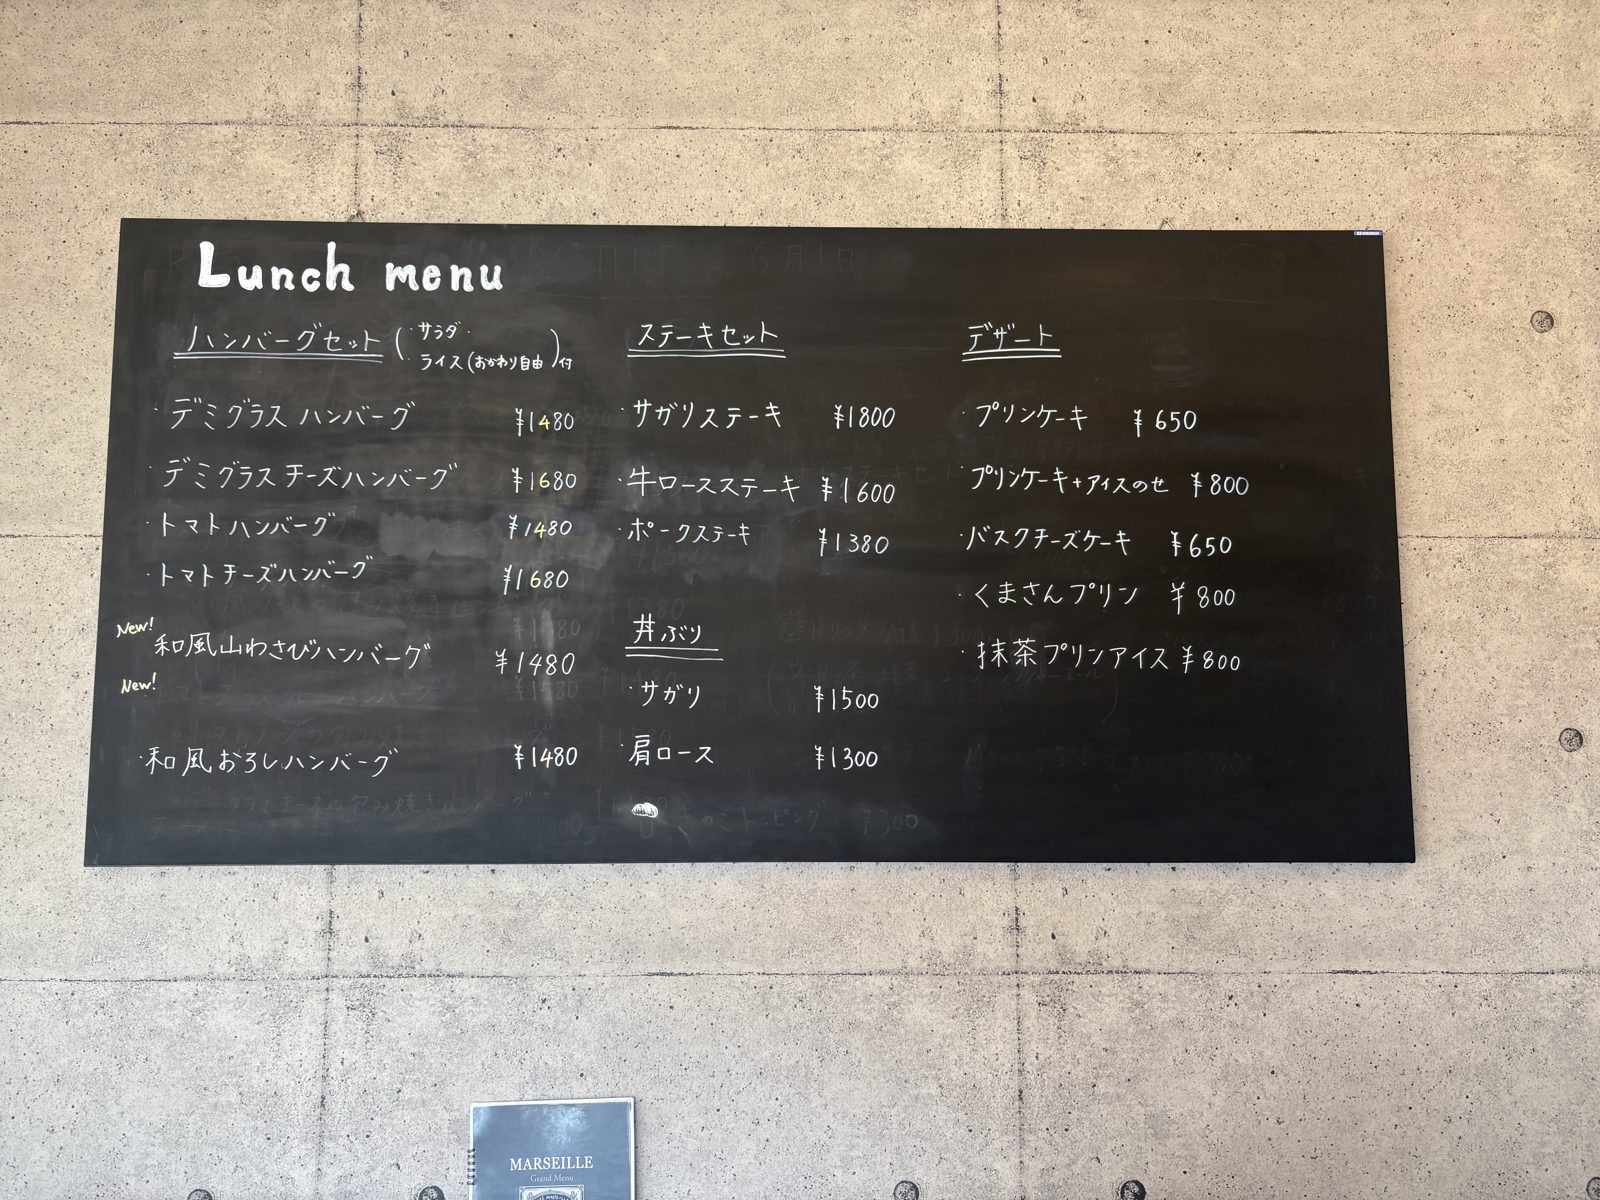 Lunch menu
ハンバーグセット (・サラダ・
・ライス(おかわり自由)付
・デミグラスハンバーグ ¥1480
・デミグラスチーズハンバーグ ¥1680
・トマトハンバーグ ¥1480
・トマトチーズハンバーグ ¥1680
New!
和風山わさびハンバーグ ¥1480
New!
・和風おろしハンバーグ ¥1480
ステーキセット
・サガリステーキ ¥1800
・牛ロースステーキ ¥1600
・ポークステーキ ¥1380
丼ぶり
・サガリ ¥1500
・肩ロース ¥1300
デザート
・プリンケーキ ¥650
・プリンケーキ+アイスのせ ¥800
・バスクチーズケーキ ¥650
・くまさんプリン ¥800
・抹茶プリンアイス ¥800
6月1日
きのこトッピング ¥300
MARSEILLE
Grand Menu